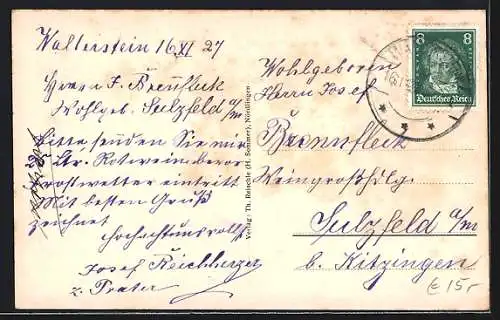 Wallerstein 16 XI 27
Herrn J. Brennfleck
Wohlgeb. Sulzfeld a/m
Bitte senden Sie mir
Ltr. Rotwein bevor
Frostwetter eintritt
Mit besten Gruß
zeichnet
Hochachtungsvollst
Josef Reichherzer
z. Prater
Verlag: Th. Reischle (H. Sommer), Nördlingen
8 8
Deutsches Reich
Wohlgeboren
Herrn Josef
Brennfleck
Weingroßhdlg.
Sulzfeld a/m
b. Kitzingen
€ 15,-